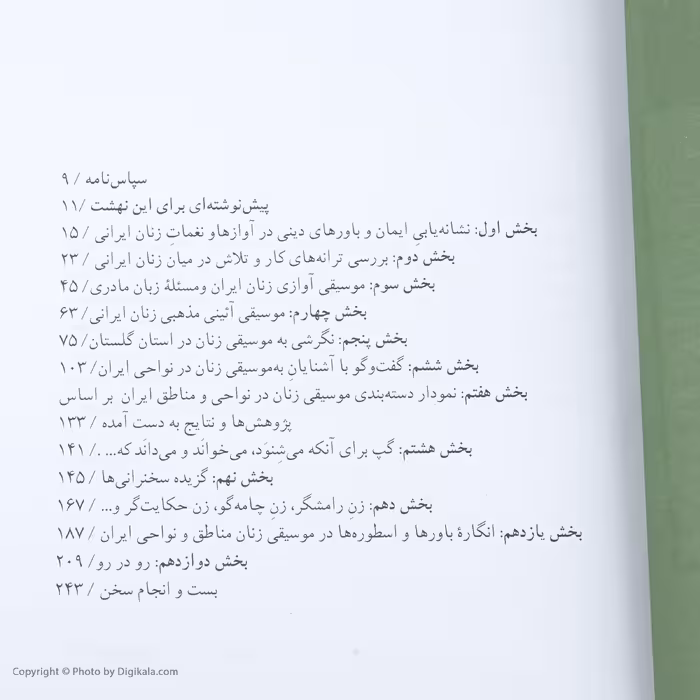 سپاس‌نامه / ۹
پیش‌نوشته‌ای برای این نهشت /۱۱
بخش اول: نشانه‌یابیِ ایمان و باورهای دینی در آوازهاو نغماتِ زنان ایرانی / ۱۵
بخش دوم: بررسی ترانه‌های کار و تلاش در میان زنان ایرانی / ۲۳
بخش سوم: موسیقی آوازی زنان ایران ومسئلهٔ زبان مادری/ ۴۵
بخش چهارم: موسیقی آئینی مذهبی زنان ایرانی/ ۶۳
بخش پنجم: نگرشی به موسیقی زنان در استان گلستان/ ۷۵
بخش ششم: گفت‌وگو با آشنایانِ به‌موسیقی زنان در نواحی ایران/ ۱۰۳
بخش هفتم: نمودار دسته‌بندی موسیقی زنان در نواحی و مناطق ایران بر اساس
پژوهش‌ها و نتایج به دست آمده / ۱۳۳
بخش هشتم: گپ برای آنکه می‌شِنوَد، می‌خوانَد و می‌دانَد که... ./ ۱۴۱
بخش نهم: گزیده سخنرانی‌ها / ۱۴۵
بخش دهم: زنِ رامشگر، زنِ چامه‌گو، زن حکایت‌گر و... / ۱۶۷
بخش یازدهم: انگارهٔ باورها و اسطوره‌ها در موسیقی زنان مناطق و نواحی ایران / ۱۸۷
بخش دوازدهم: رو در رو/ ۲۰۹
بست و انجام سخن / ۲۴۳
Copyright © Photo by Digikala.com